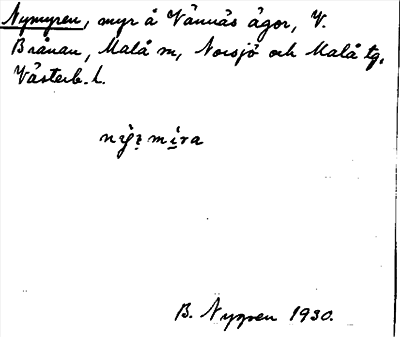 Nymyren, myr å Vännäs ägor, V.
Brånan, Malå m, Norsjö och Malå tg,
Västerb. l.
B. Nygren 1930.